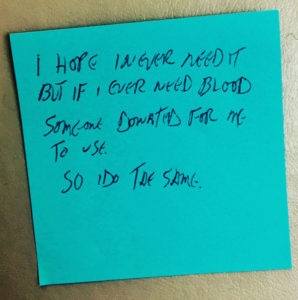 I HOPE I NEVER NEED IT
BUT IF I EVER NEED BLOOD
SOMEONE DONATED FOR ME
TO USE.
SO I DO THE SAME.